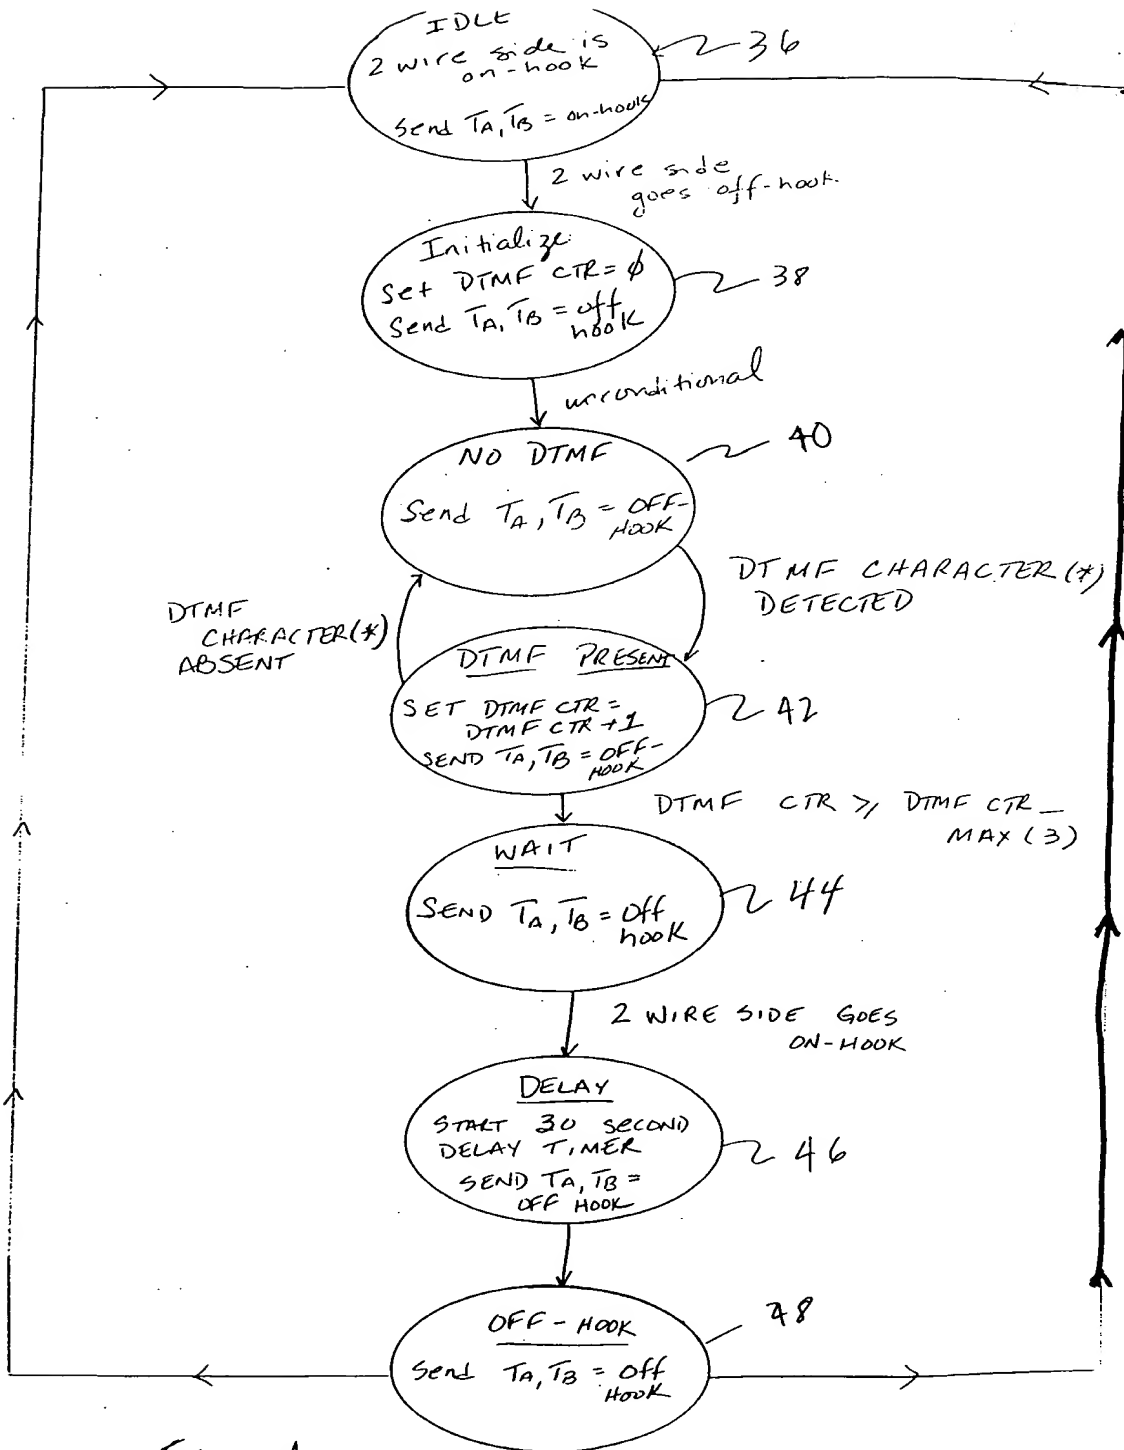 IDLE
2 wire side is
on-hook
Send TA, TB = on-hook
36
2 wire side
goes off-hook.
Initialize:
Set DTMF CTR = ϕ
Send TA, TB = off
hook
38
unconditional
NO DTMF
Send TA, TB = OFF-
HOOK
40
DTMF CHARACTER (*)
DETECTED
DTMF
CHARACTER (*)
ABSENT
DTMF PRESENT
SET DTMF CTR =
DTMF CTR + 1
SEND TA, TB = OFF-
HOOK
42
DTMF CTR ⩾ DTMF CTR_
MAX (3)
WAIT
SEND TA, TB = Off
hook
44
2 WIRE SIDE GOES
ON-HOOK
DELAY
START 30 SECOND
DELAY TIMER
SEND TA, TB =
OFF HOOK
46
OFF-HOOK
Send TA, TB = Off
HOOK
48